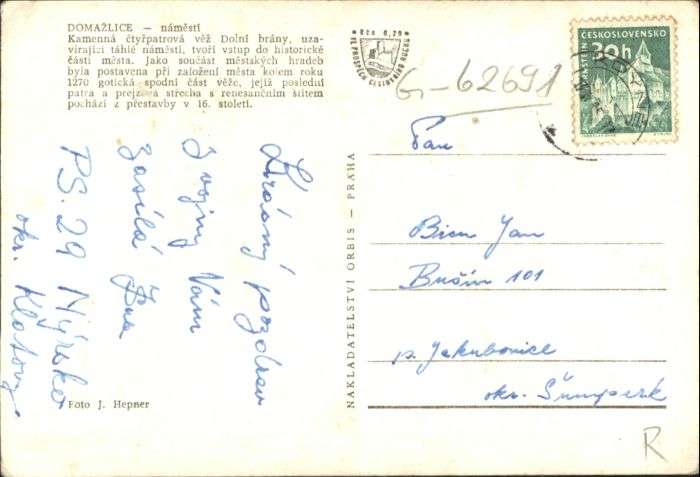 DOMAŽLICE — náměstí
Kamenná čtyřpatrová věž Dolní brány, uza-
vírající táhlé náměstí, tvoří vstup do historické
části města. Jako součást městských hradeb
byla postavena při založení města kolem roku
1270 gotická spodní část věže, jejíž poslední
patra a prejzová střecha s renesančním štítem
pochází z přestavby v 16. století.
Krásný pozdrav
Vám
zasílá
PS. 29
okr. Klatovy
Foto J. Hepner
NAKLADATELSTVÍ ORBIS — PRAHA
Kčs 0,20
VE PROSPĚCH
G-62691
ČESKOSLOVENSKO
30 h
Pan
Bien Jan
Bušín 101
p. Jakubovice
okr. Šumperk
R